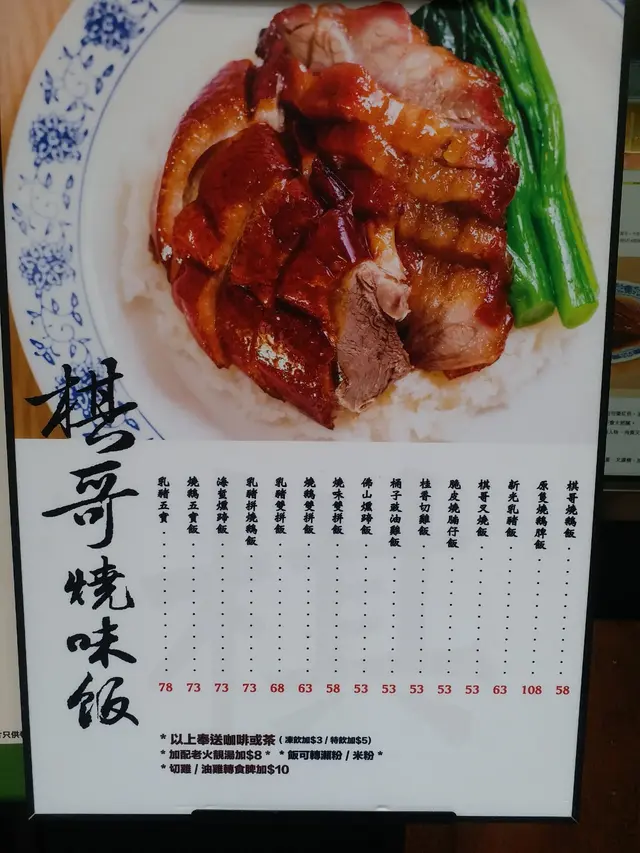 棋哥燒味飯
棋哥燒鵝飯 58
原隻燒鵝脾飯 108
新光乳豬飯 63
棋哥叉燒飯 53
脆皮燒腩仔飯 53
桂香切雞飯 53
桶子豉油雞飯 53
佛山燻蹄飯 53
燒味雙拼飯 58
燒鵝雙拼飯 63
乳豬雙拼飯 68
乳豬拼燒鵝飯 73
海蜇燻蹄飯 73
燒鵝五寶飯 73
乳豬五寶 78
* 以上奉送咖啡或茶 ( 凍飲加$3 / 特飲加$5)
* 加配老火靚湯加$8 * * 飯可轉瀨粉 / 米粉 *
* 切雞 / 油雞轉食脾加$10